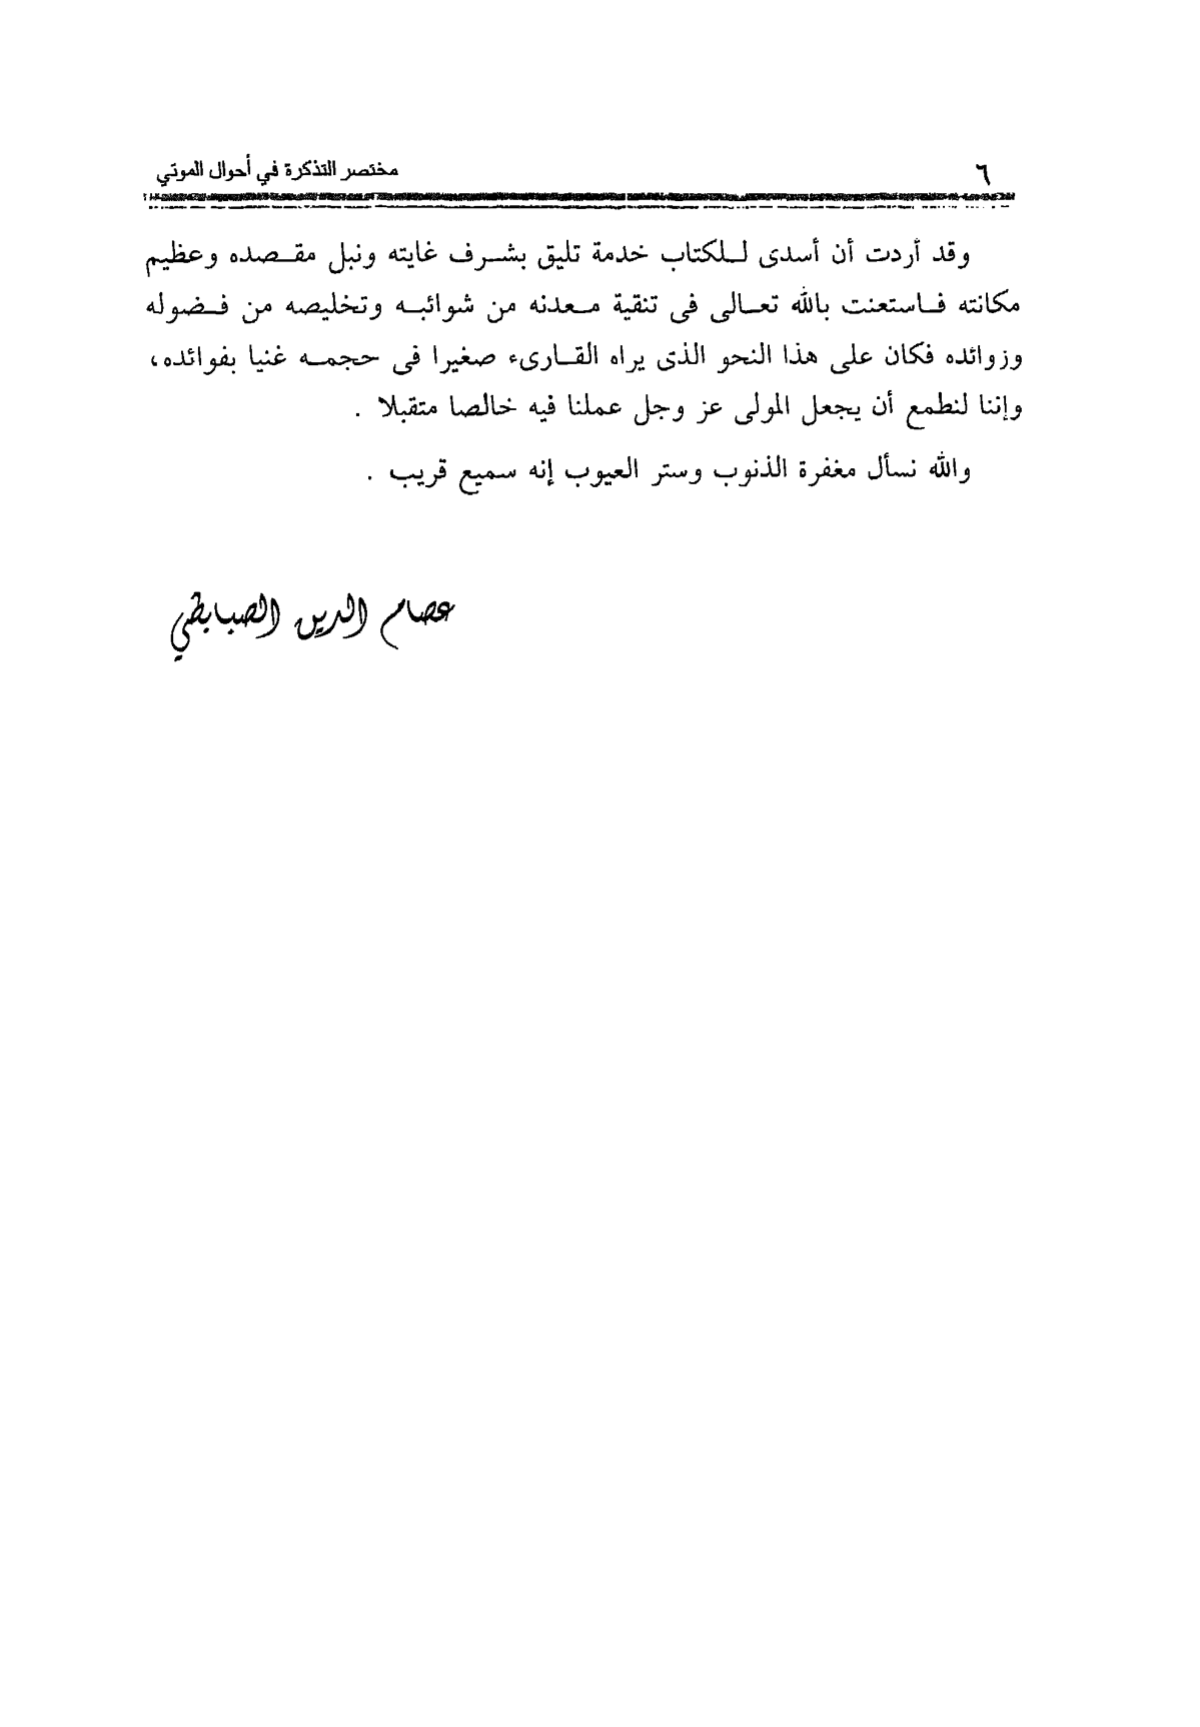 ٦
مختصر التذكرة في أحوال الموتي
وقد أردت أن أسدى للكتاب خدمة تليق بشرف غايته ونبل مقصده وعظيم
مكانته فاستعنت بالله تعالى فى تنقية معدنه من شوائبه وتخليصه من فضوله
وزوائده فكان على هذا النحو الذى يراه القارىء صغيرا فى حجمه غنيا بفوائده،
وإننا لنطمع أن يجعل المولى عز وجل عملنا فيه خالصا متقبلا .
والله نسأل مغفرة الذنوب وستر العيوب إنه سميع قريب .
عصام الدين الصبابطي